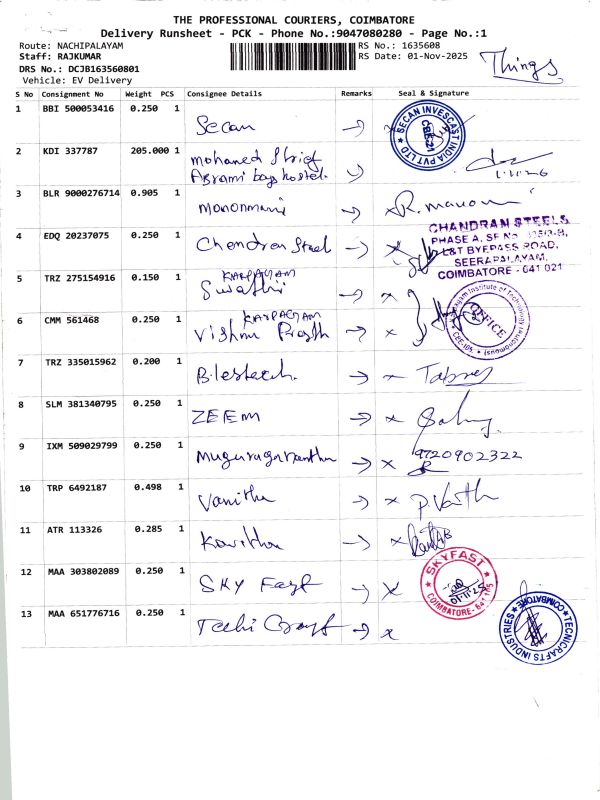 THE PROFESSIONAL COURIERS, COIMBATORE
Delivery Runsheet - PCK - Phone No.:9047080280 - Page No.:1
Route: NACHIPALAYAM
RS No.: 1635608
Staff: RAJKUMAR
RS Date: 01-Nov-2025
Things
DRS No.: DCJB163560801
Vehicle: EV Delivery
S No Consignment No Weight PCS Consignee Details Remarks Seal & Signature
1 BBI 500053416 0.250 1 Secan
SECAN INVESCAST INDIA PVT LTD
CBE-21
2 KDI 337787 205.000 1 mohamed
hostel.
3 BLR 9000276714 0.905 1 R.
4 EDQ 20237075 0.250 1 Chendran Steel
CHANDRAM STEELS
PHASE A, SF No
L&T BYEPASS ROAD,
SEERAPALAYAM,
COIMBATORE - 641 021
5 TRZ 275154916 0.150 1 KARPAGAM
Swathi
6 CMM 561468 0.250 1 KARPAGAM
Vishnu
Institute of Technology
OFFICE
7 TRZ 335015962 0.200 1 Blestech.
8 SLM 381340795 0.250 1 ZEEM
9 IXM 509029799 0.250 1 9720902322
10 TRP 6492187 0.498 1 Vanitha
11 ATR 113326 0.285 1 Kavitha
12 MAA 303802089 0.250 1 SKY Fast
SKYFAST
COIMBATORE
13 MAA 651776716 0.250 1
TECNICRAFTS INDUSTRIES
COIMBATORE